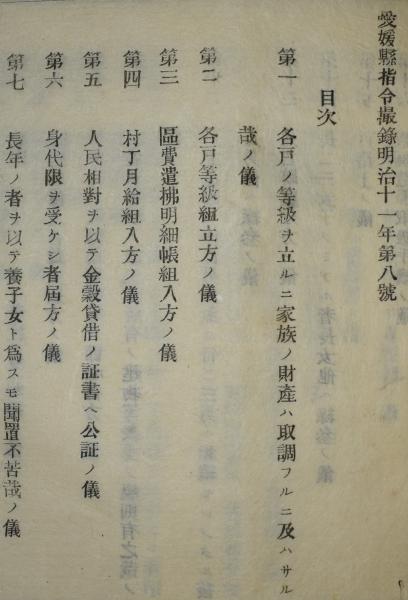 愛媛縣指令撮錄明治十一年第八號
目次
第一 各戸ノ等級ヲ立ルニ家族ノ財產ハ取調フルニ及ハサル
哉ノ儀
第二 各戸等級組立方ノ儀
第三 區費遣拂明細帳組入方ノ儀
第四 村丁月給組入方ノ儀
第五 人民相對ヲ以テ金穀貸借ノ証書ヘ公証ノ儀
第六 身代限ヲ受ケシ者屆方ノ儀
第七 長年ノ者ヲ以テ養子女ト爲スモ聞置不苦哉ノ儀